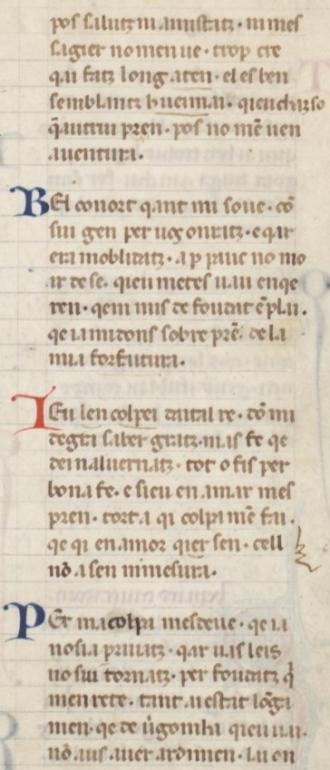 pos salutz m aiustatz · ni mes
sagier no men ue · trop cre
qai fatz long aten · el es ben
semblantz bueimai · qieu chazso
qautrui pren · pos no me uen
auentura.
BEl conort qant mi soue · co
sui gen per uos onratz · e qar
era moblitatz · a p pauc no mo
ar de se. qieu metes uau enqe
ren · qem mis de foudat e plai.
qe ia midons sobre pre. de la
mia forfaitura.
IEu len colpei daital re · com mi
degra saber gratz. mas fe qe
dei naluernatz · tot o fis per
bona fe. e sieu en amar mes
pren · tort a qi colpa me fai.
qe qi en amor qier sen · cell
no a sen ni mesura.
PEr ma colpa mesdeue · qe ia
nosia priuatz · qar uas leis
no sui tornatz · per foudatz q
men rete · tant nestat longa
men · qe de uergonha qieu nai.
no aus auer ardimen · lai on